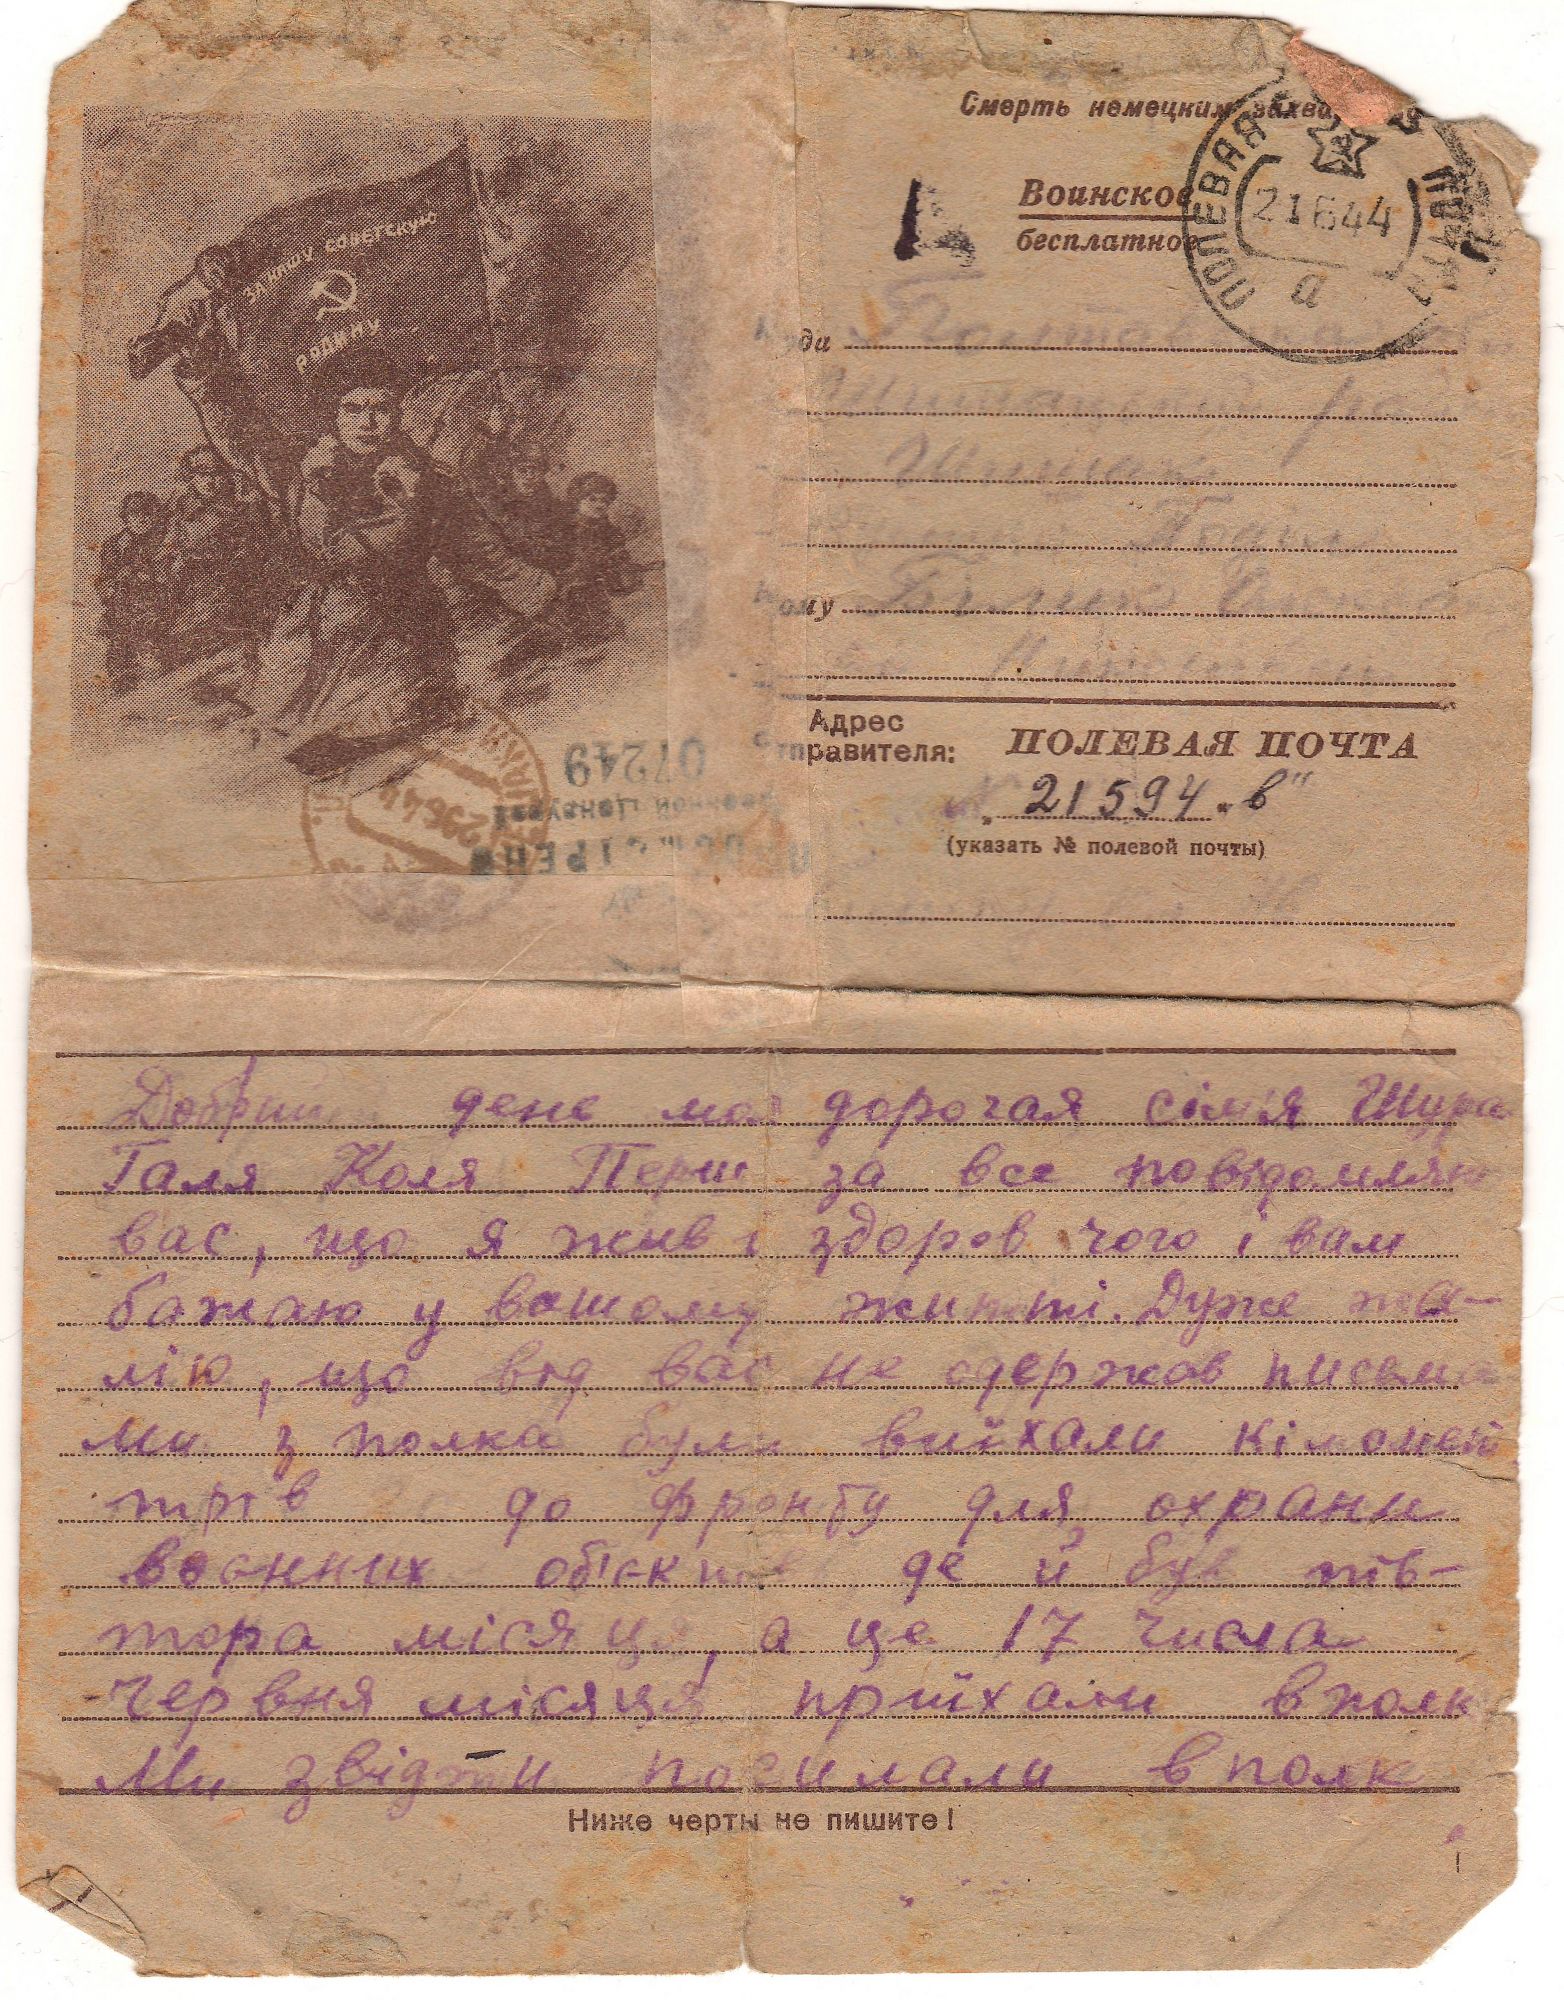 ЗА НАШУ СОВЕТСКУЮ
РОДИНУ
Смерть немецким
Воинское
бесплатное
ПОЛЕВАЯ ПОЧТА
21 6 44
а
Куда Полтавська
Шишацький
Шишаки
Поділ
Кому
Адрес
отправителя:
ПОЛЕВАЯ ПОЧТА
21594 „в"
(указать № полевой почты)
ПРОСМОТРЕНО
Военной Цензурой
07249
29 6 44
Добрий день моя дорогая сімя Шура
Галя Коля Перш за все повідомляю
вас, що я жив і здоров чого і вам
бажаю у вашому житті. Дуже жа-
лію, що від вас не одержав письма
Ми з полка були виїхали кіломет
трів до фронту для охрани
воєнних обєктів де й був пів-
тора місяця, а це 17 числа
червня місяця приїхали в полк
Ми звідти посилали в полк
Ниже черты не пишите!